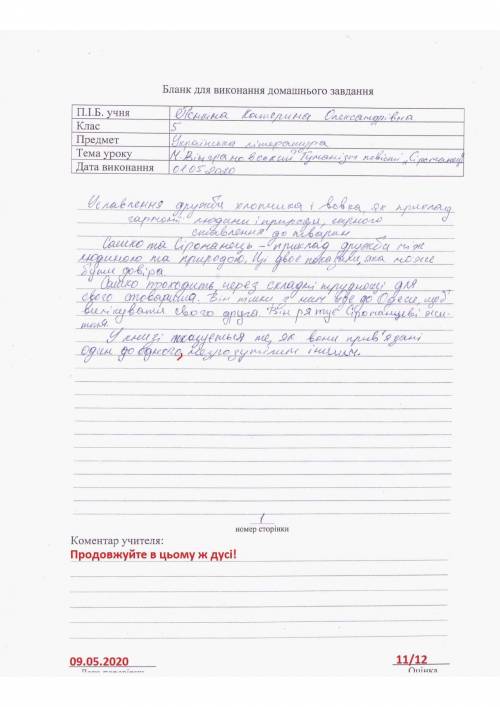 Бланк для виконання домашнього завдання
П.І.Б. учня Катерина Олександрівна
Клас 5
Предмет Українська література
Тема уроку М. Вінграновський "Гуманізм повісті „Сіроманець"
Дата виконання 01.05.2020
Уславлення дружби хлопчика і вовка як приклад
гармонії людини і природи, гарного
ставлення до тварин
Сашко та Сіроманець – приклад дружби між
людиною та природою. Ці двоє показали, яка може
бути довіра.
Сашко проходить через складні труднощі для
свого товариша. Він тільки з ним йде до Одеси, щоб
вилікувати свого друга. Він рятує Сіроманцеві жит-
тя.
У книзі те, як вони прив'язані
один до одного, незрозумілим іншим.
1
номер сторінки
Коментар учителя:
Продовжуйте в цьому ж дусі!
09.05.2020 11/12
Дата перевірки Оцінка